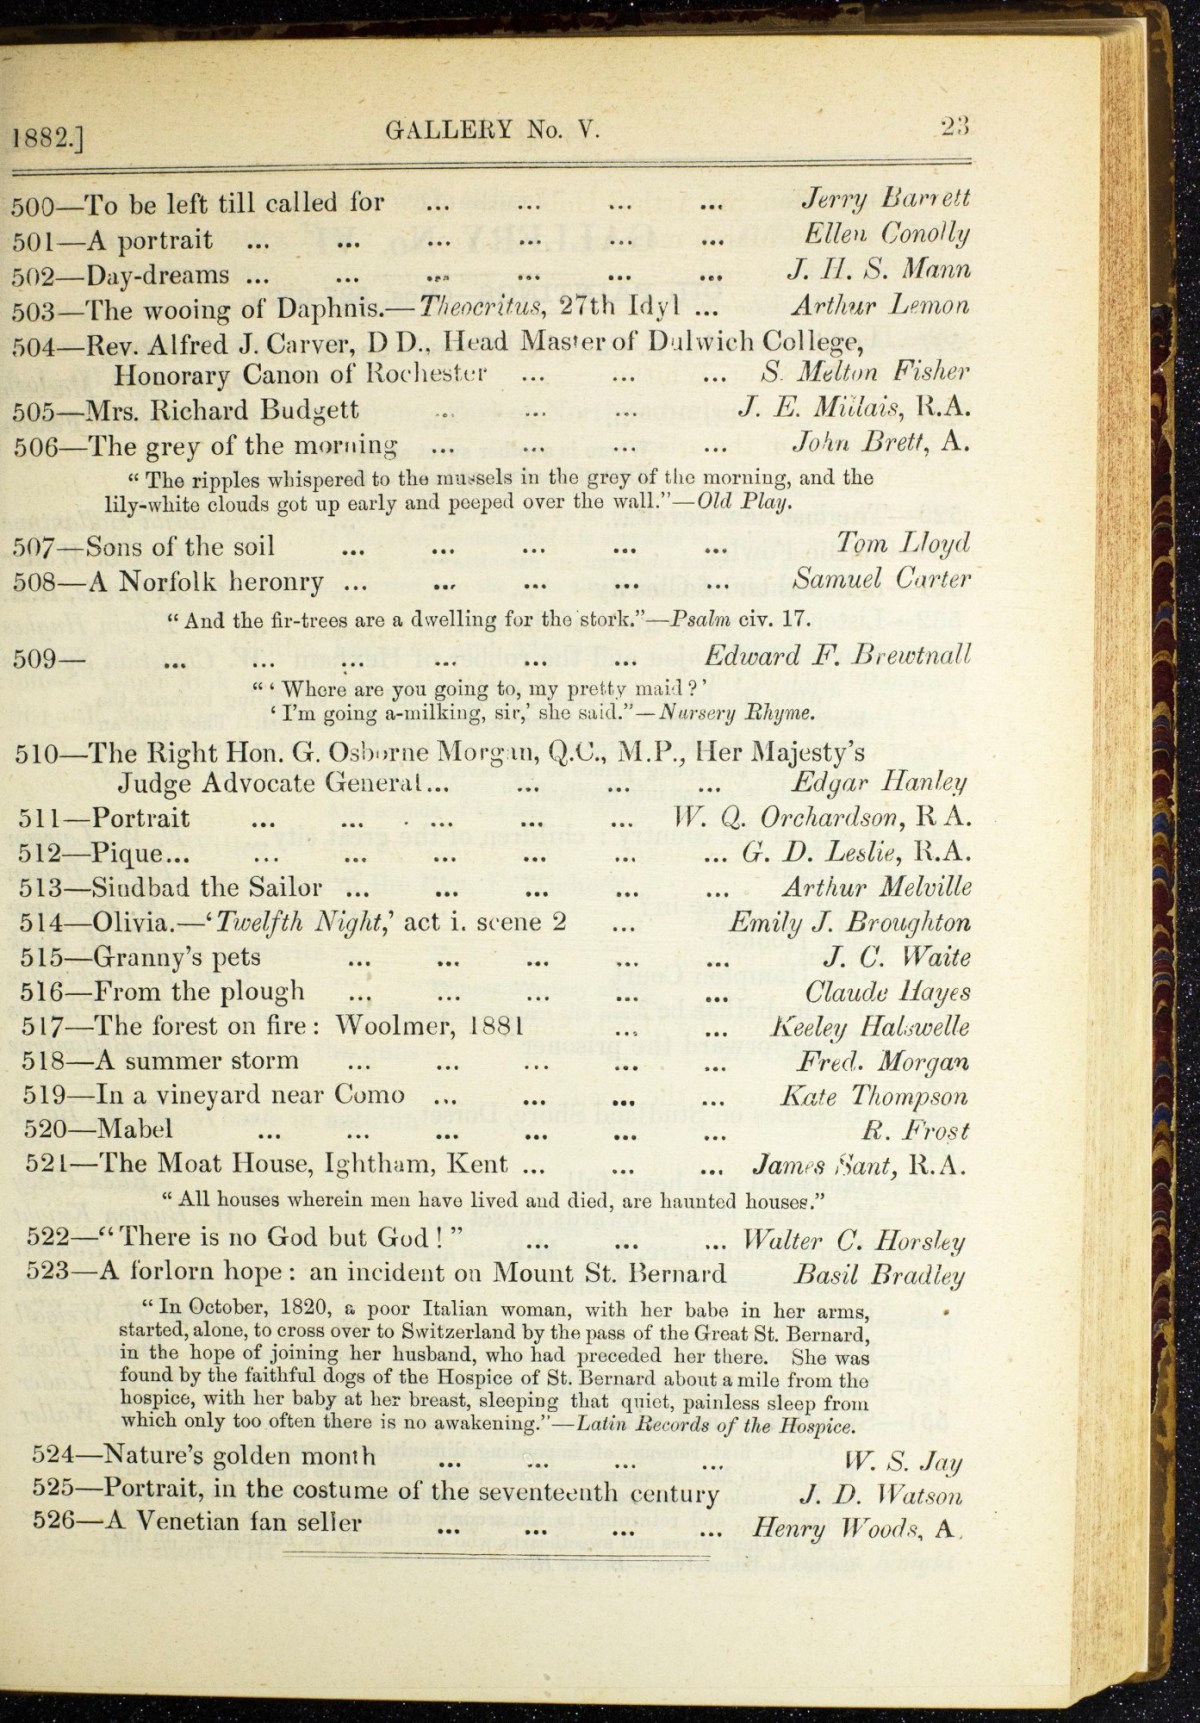 1882.] GALLERY No. V. 23
500—To be left till called for ... ... ... ... Jerry Barrett
501—A portrait ... ... ... ... ... ... Ellen Conolly
502—Day-dreams ... ... ... ... ... ... J. H. S. Mann
503—The wooing of Daphnis.—Theocritus, 27th Idyl ... Arthur Lemon
504—Rev. Alfred J. Carver, D D., Head Master of Dulwich College,
Honorary Canon of Rochester ... ... ... S. Melton Fisher
505—Mrs. Richard Budgett ... ... ... J. E. Millais, R.A.
506—The grey of the morning ... ... ... ... John Brett, A.
“ The ripples whispered to the mussels in the grey of the morning, and the
lily-white clouds got up early and peeped over the wall.”—Old Play.
507—Sons of the soil ... ... ... ... ... Tom Lloyd
508—A Norfolk heronry ... ... ... ... ... Samuel Carter
“ And the fir-trees are a dwelling for the stork.”—Psalm civ. 17.
509— ... ... ... ... ... ... Edward F. Brewtnall
“ ‘ Where are you going to, my pretty maid ? ’
‘ I’m going a-milking, sir,’ she said.”—Nursery Rhyme.
510—The Right Hon. G. Osborne Morgan, Q.C., M.P., Her Majesty’s
Judge Advocate General... ... ... ... Edgar Hanley
511—Portrait ... ... ... ... ... W. Q. Orchardson, R A.
512—Pique... ... ... ... ... ... ... G. D. Leslie, R.A.
513—Sindbad the Sailor ... ... ... ... ... Arthur Melville
514—Olivia.—‘Twelfth Night,’ act i. scene 2 ... Emily J. Broughton
515—Granny’s pets ... ... ... ... ... J. C. Waite
516—From the plough ... ... ... ... ... Claude Hayes
517—The forest on fire : Woolmer, 1881 ... ... Keeley Halswelle
518—A summer storm ... ... ... ... ... Fred. Morgan
519—In a vineyard near Como ... ... ... ... Kate Thompson
520—Mabel ... ... ... ... ... ... R. Frost
521—The Moat House, Ightham, Kent ... ... ... James Sant, R.A.
“ All houses wherein men have lived and died, are haunted houses.”
522—“ There is no God but God ! ” ... ... ... Walter C. Horsley
523—A forlorn hope : an incident on Mount St. Bernard Basil Bradley
“ In October, 1820, a poor Italian woman, with her babe in her arms,
started, alone, to cross over to Switzerland by the pass of the Great St. Bernard,
in the hope of joining her husband, who had preceded her there. She was
found by the faithful dogs of the Hospice of St. Bernard about a mile from the
hospice, with her baby at her breast, sleeping that quiet, painless sleep from
which only too often there is no awakening.”—Latin Records of the Hospice.
524—Nature’s golden month ... ... ... ... W. S. Jay
525—Portrait, in the costume of the seventeenth century J. D. Watson
526—A Venetian fan seller ... ... ... ... Henry Woods, A.